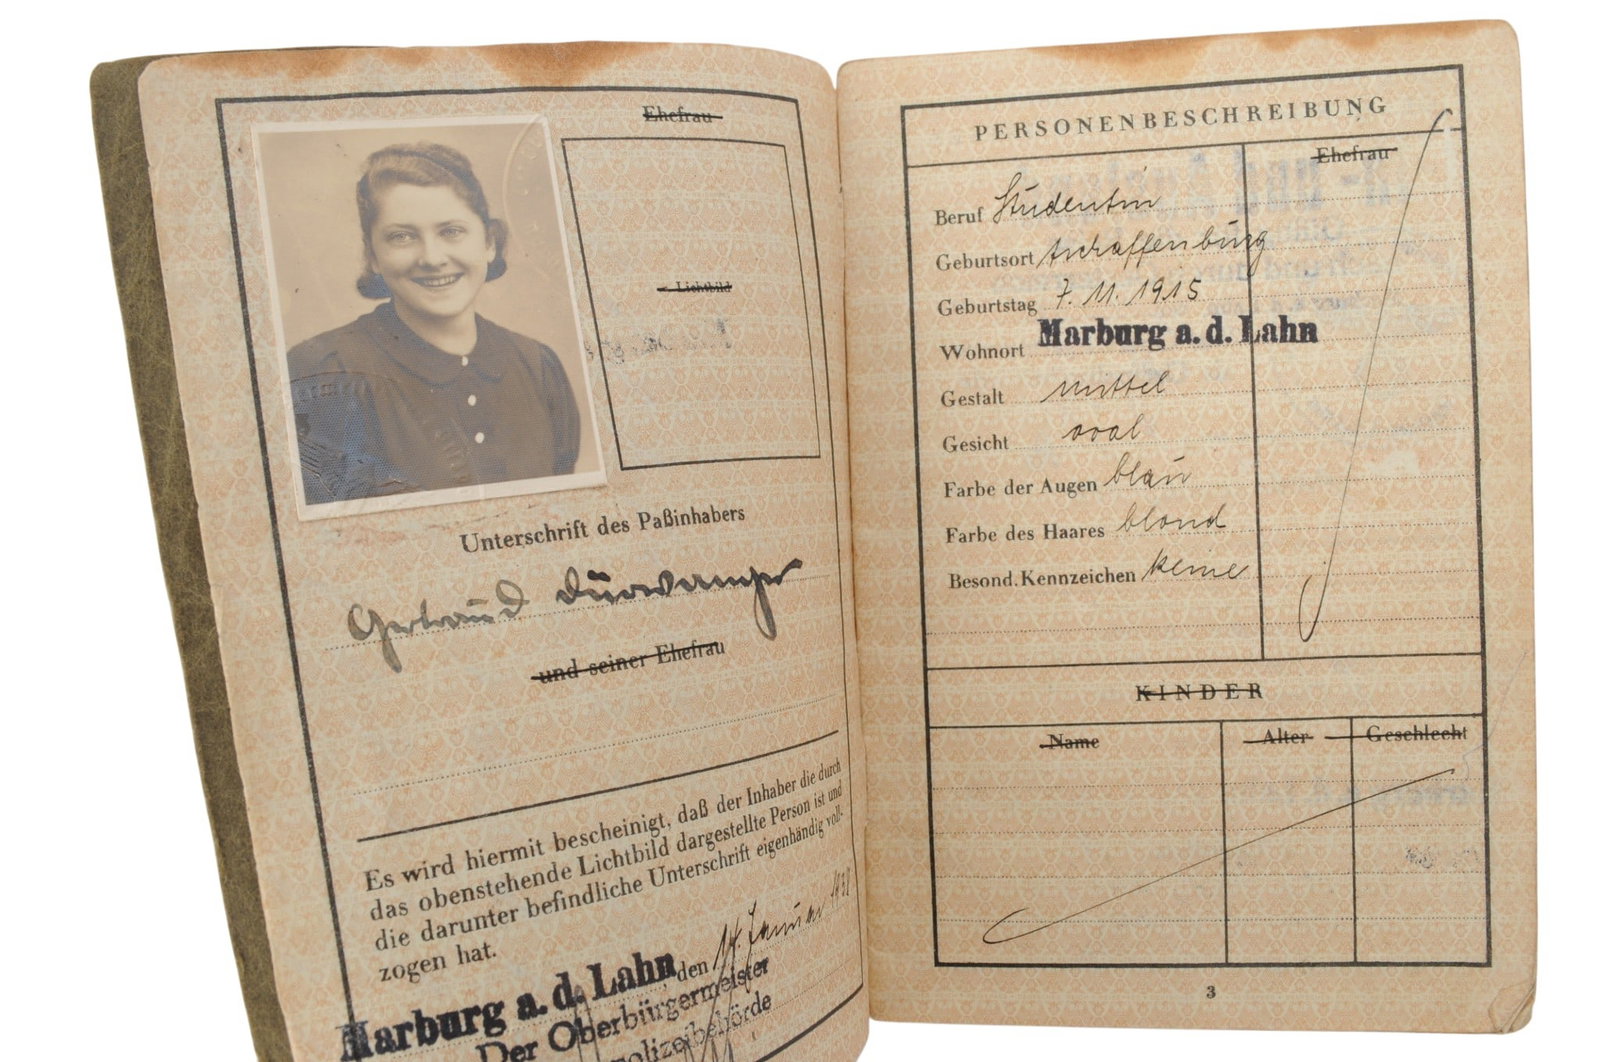 Ehefrau
Lichtbild
Unterschrift des Paßinhabers
Gertraud
und seiner Ehefrau
Es wird hiermit bescheinigt, daß der Inhaber die durch
das obenstehende Lichtbild dargestellte Person ist und
die darunter befindliche Unterschrift eigenhändig voll-
zogen hat.
Marburg a. d. Lahn, den 14. Januar 1938
Der Oberbürgermeister
Polizeibehörde
PERSONENBESCHREIBUNG
Ehefrau
Beruf Studentin
Geburtsort Aschaffenburg
Geburtstag 7. 11. 1915
Wohnort Marburg a. d. Lahn
Gestalt mittel
Gesicht oval
Farbe der Augen blau
Farbe des Haares blond
Besond. Kennzeichen keine
KINDER
Name Alter Geschlecht
3